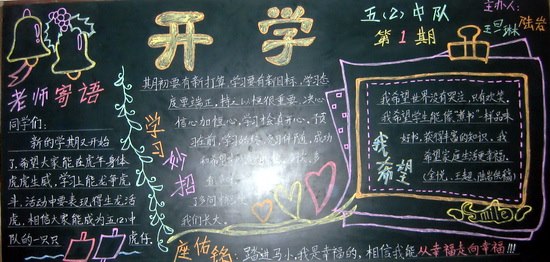 开学
五(2)中队
第1期
主办人:
陆岩
王思琳
老师寄语
同学们:
新的学期又开始
了,希望大家能在虎年身体
虎虎生威,学习上能龙争虎
斗,活动中要表现得生龙活
虎,相信大家能成为五(2)中
队的一只只
虎仔。
学习妙招
期初要有新打算,学习要有新目标,学习态
度要端正,持之以恒很重要,决心
信心加恒心,学习会有开心,预
习在前,
成功
我们长大。
我希望
我希望世界没有哭泣,只有欢笑。
我希望学生能像“煮书”一样品味
好书,获得丰富的知识。我
希望家庭生活更幸福。
Smile
座佑铭:踏进马小,我是幸福的,相信我能从幸福走向幸福!!!